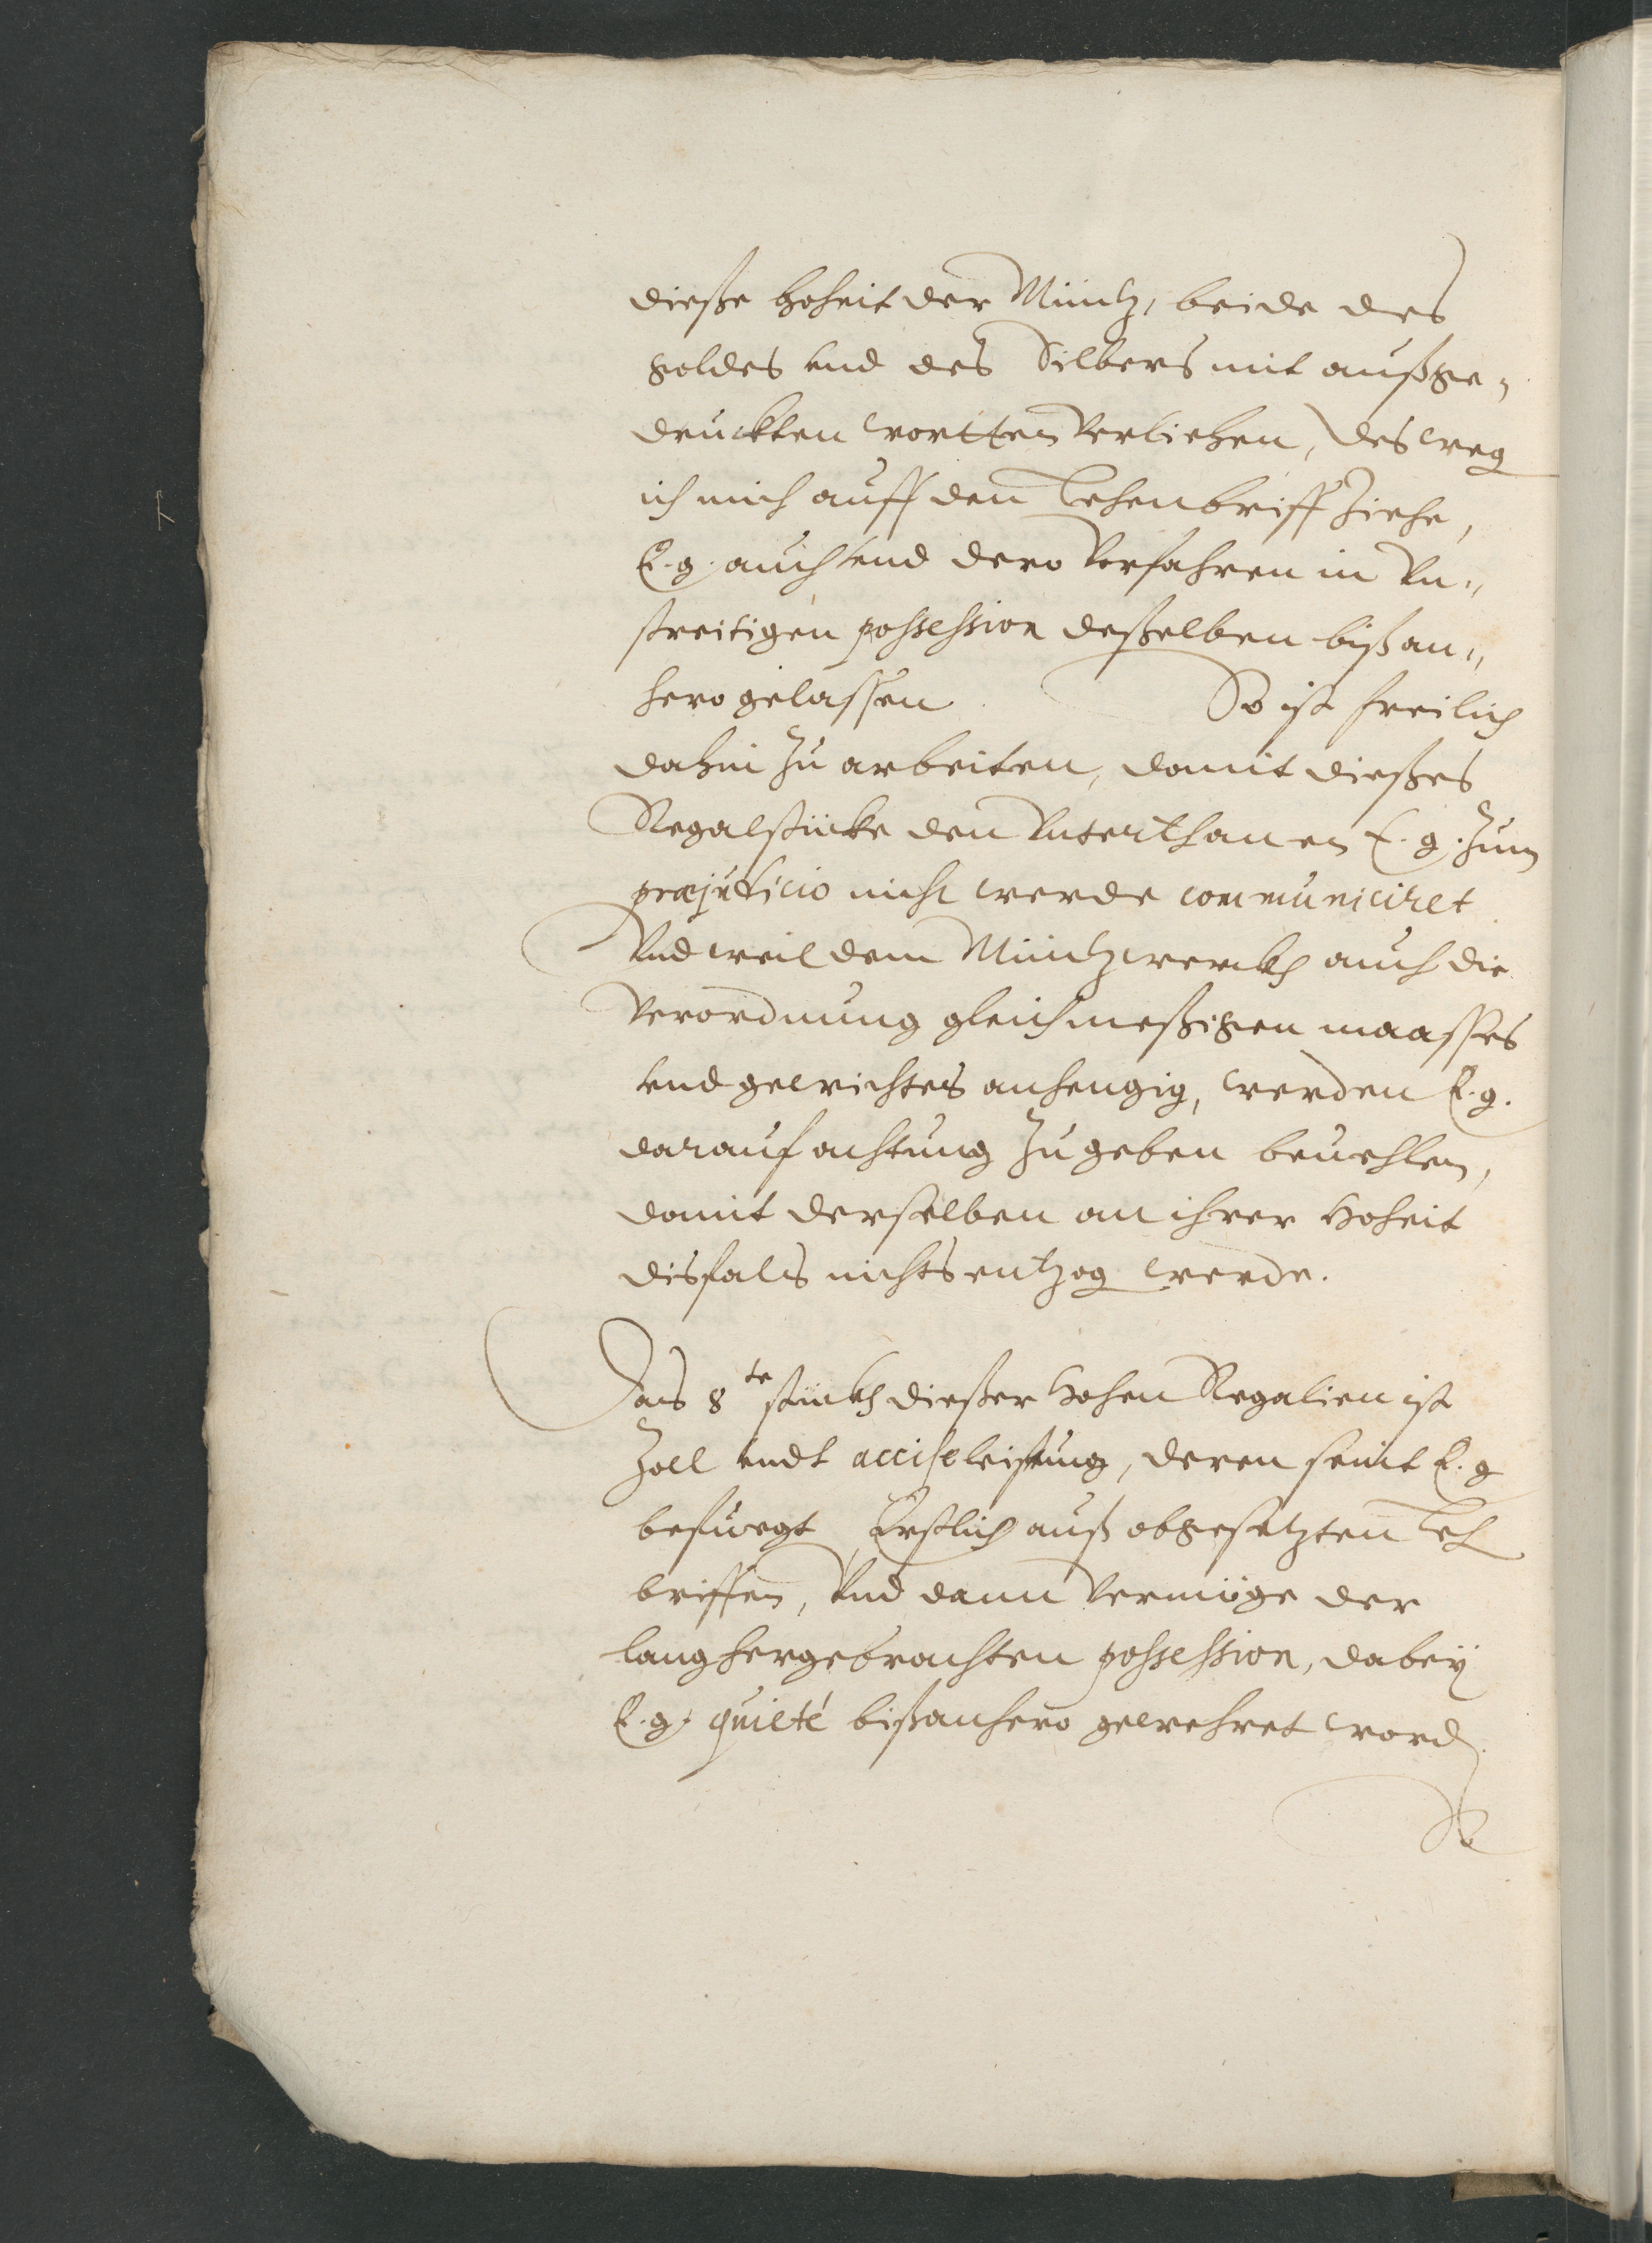 dieße hoheit der Müntz, beide des
goldes vnd des Silbers mit außge„
druckten wortten verliehen, deßweg
ich mich auff den Lehenbriff ziehe,
E. g. auch vnd dero Vorfahren in Vn„
streitigen possession deßelben bißan„
hero gelassen So ist freilich
dahin zu arbeiten, damit dießes
Regalstücke den Vnterthanen E. g. zum
præjudicio nicht werde communiciret
Vnd weil dem Müntzwerckh auch die
Verordnung gleichmeßigen maasses
vnd gewichtes anhengig, werden E. g.
darauf achtung zu geben beuehlen,
damit derselben an ihrer Hoheit
disfals nichts entzog werde.
Das 8te stückh dießer Hohen Regalien ist
Zoll vndt acciseleistung, deren seint E. g
befuegt, Erstlich auß obgesetzten Leh
briffen, Vnd dann Vermüge der
lang hergebrachten possession, dabeÿ
E. g. quietè bißanhero gewehret word.
So